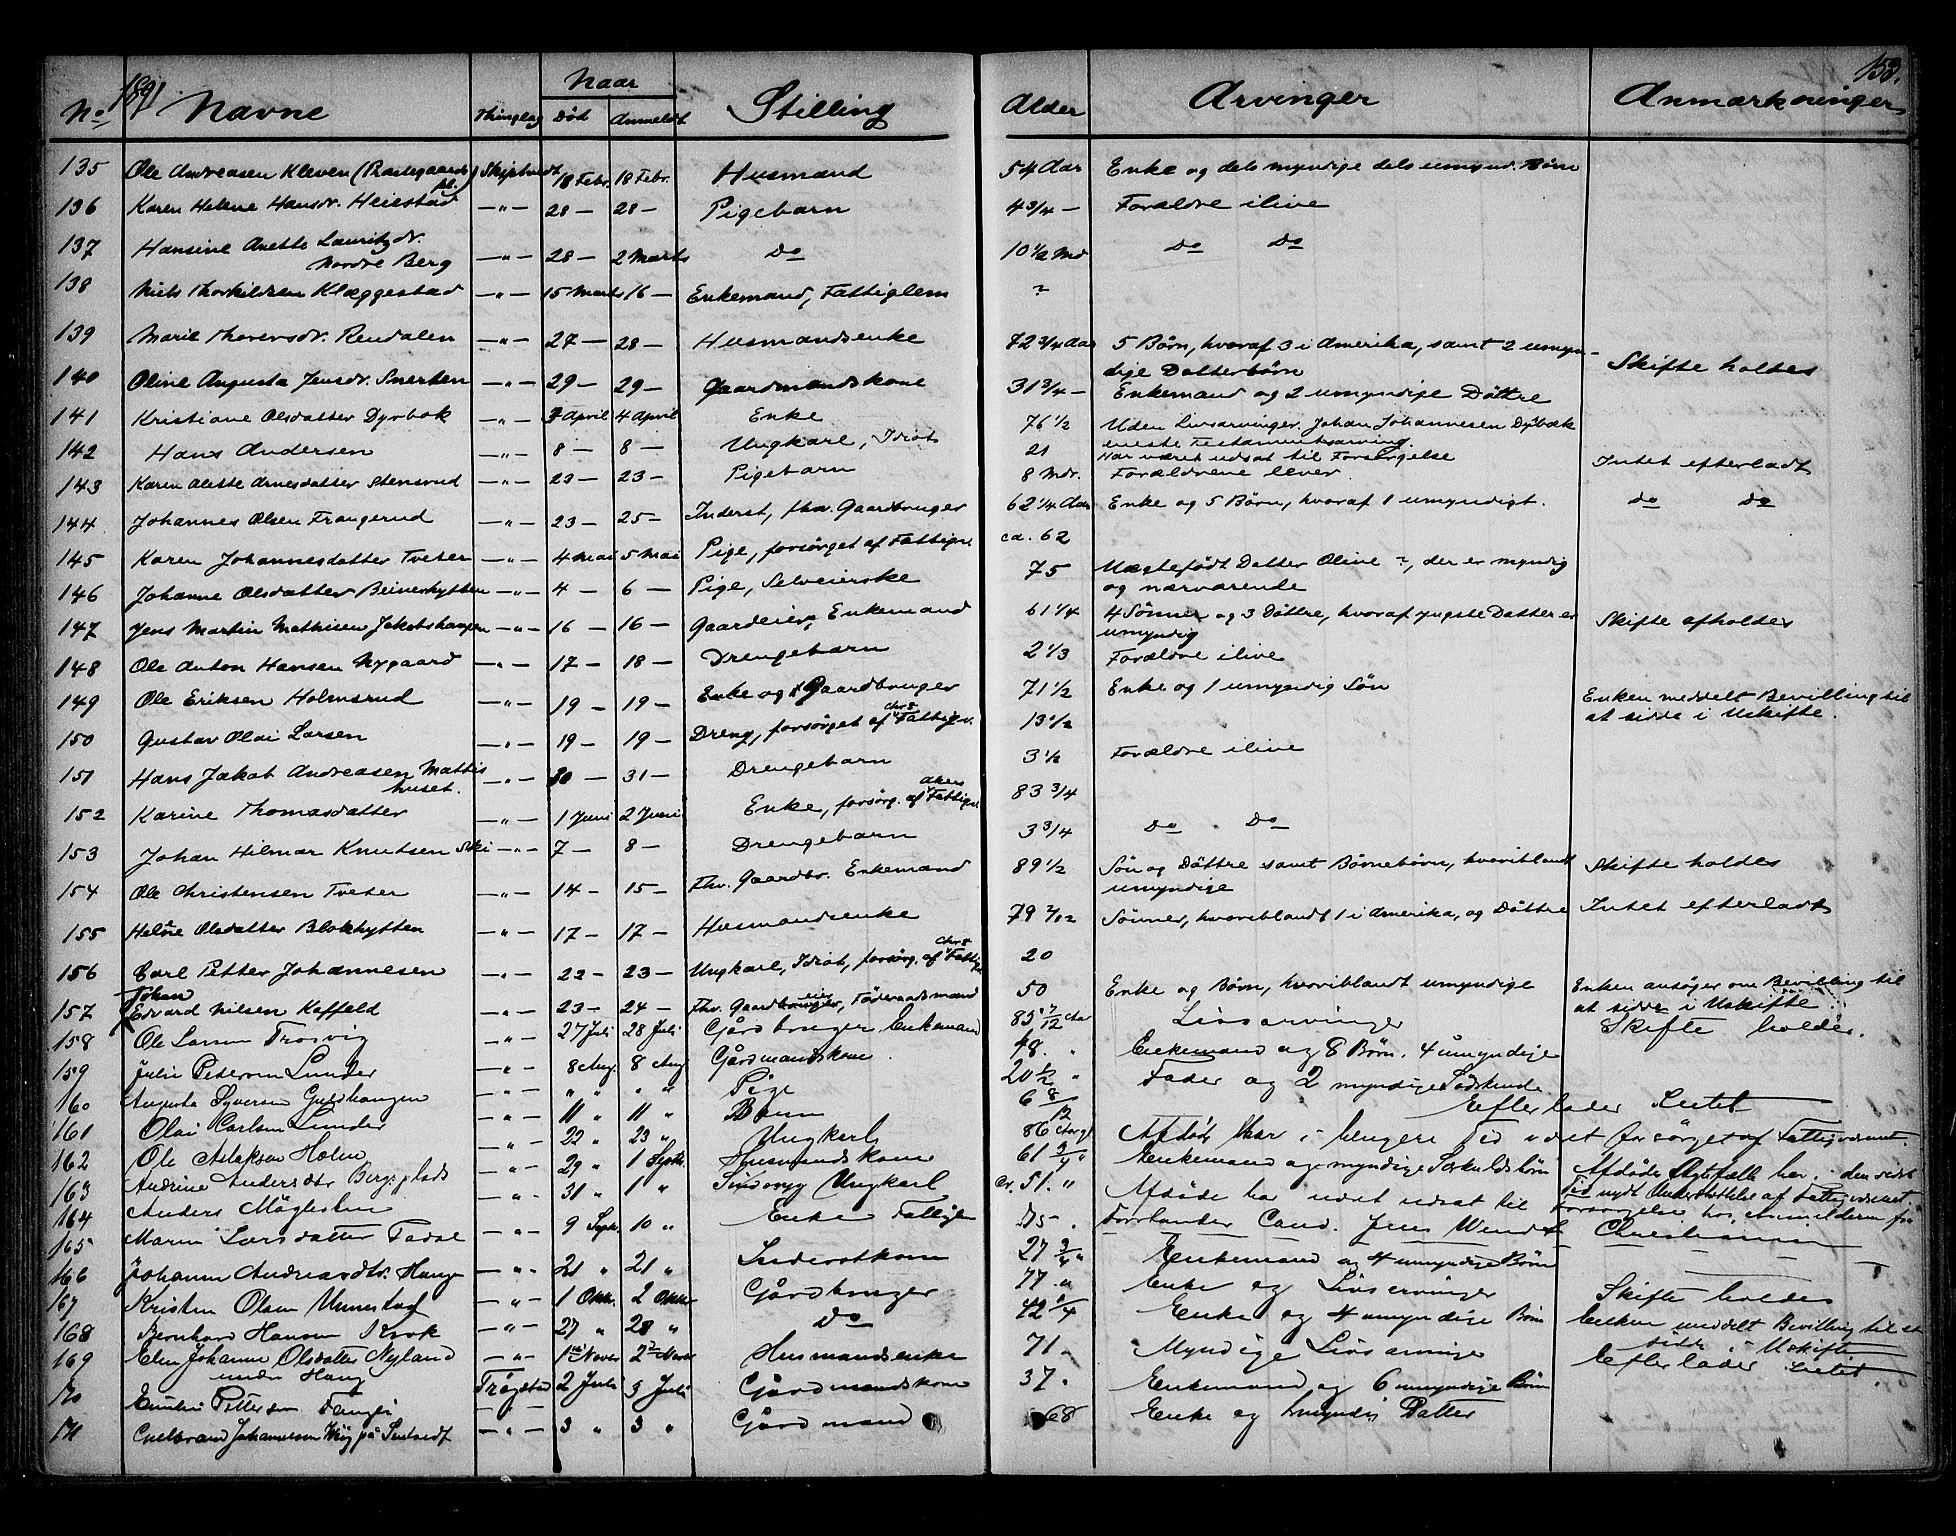 1891
153.
No Navne Thinglag Naar Død Anmeldt Stilling Alder Arvinger Anmærkninger
135 Ole Andreasen Kleven (Præstegaards pl.) Skiptvedt 18 Febr. 18 Febr. Husmand 54 Aar Enke og dels myndige dels umynd. Børn
136 Karen Helene Hansdr. Heiestad —"— 28 — 28 — Pigebarn 4 3/4 — Forældre ilive
137 Hansine Anette Lauritzdr. Nordre Berg —"— 28 — 2 Marts Do 10 1/2 Md Do Do
138 Niels Thorkildsen Klæggestad —"— 15 Marts 16 — Enkemand, Fattiglem ?
139 Marie Thorersdr. Rendalen —"— 27 — 28 — Husmandsenke 72 3/4 Aar 5 Børn, hvoraf 3 i Amerika, samt 2 umyn-
dige Datterbørn
140 Oline Augusta Jensdr. Smerten —"— 29 — 29 — Gaardmandskone 31 3/4 — Enkemand og 2 umyndige Døttre Skifte holdes
141 Kristiane Olsdatter Dyrbok —"— 3 April 4 April Enke 76 1/2 Uden Livsarvinger. Johan Johannesen Dybæk
eneste Testamentsarving.
142 Hans Andersen —"— 8 — 8 — Ungkarl, Idiot 21 Har været udsat til Forsørgelse
143 Karen Alette Arnesdatter Stensrud —"— 23 — 23 — Pigebarn 8 Mdr. Forældrene lever Intet efterladt
144 Johannes Olsen Frangerud —"— 23 — 25 — Inderst, fhv. Gaardbruger 62 1/4 Aar Enke og 5 Børn, hvoraf 1 umyndigt. do do
145 Karen Johannesdatter Tveter —"— 4 Mai 5 Mai Pige, forsørget af Fattigv. ca. 62
146 Johanne Olsdatter Beinerhytten —"— 4 — 6 — Pige, Selveierske 75 Uægtefødt Datter Oline ?, der er myndig
og nærværende
147 Jens Martin Mathisen Jakobshaugen —"— 16 — 16 — Gaardeier, Enkemand 61 1/4 4 Sønner og 3 Døttre, hvoraf yngste Datter er
umyndig Skifte afholdes
148 Ole Anton Hansen Nygaard —"— 17 — 18 — Drengebarn 2 1/3 Forældre ilive
149 Ole Eriksen Holmsrud —"— 19 — 19 — Enke og Gaardbruger 71 1/2 Enke og 1 umyndig Søn Enken meddelt Bevilling til
at sidde i Uskifte.
150 Gustav Olai Larsen —"— 19 — 19 — Dreng, forsørget af Chr8 Fattigv. 13 1/2
151 Hans Jakob Andreasen Mattis
huset. —"— 30 — 31 — Drengebarn 3 1/2 Forældre ilive
152 Karine Thomasdatter —"— 1 Juni 2 Juni Enke, forsørg. af Akers Fattigv. 83 3/4
153 Johan Hilmar Knutsen Ski —"— 7 — 8 — Drengebarn 3 3/4 Do Do
154 Ole Christensen Tveter —"— 14 — 15 — Fhv. Gaardbr. Enkemand 89 1/2 Søn og Døttre samt Børnebørn, hvoriblandt
umyndige Skifte holdes
155 Helene Olsdatter Blokhytten —"— 17 — 17 — Husmandsenke 79 2/12 Sønner, hvoriblandt 1 i Amerika, og Døttre Intet efterladt
156 Carl Petter Johannesen —"— 22 — 23 — Ungkarl, Idiot, forsørg. af Chr8 Fattigv 20
157 Johan Edvard Nilsen Kaffeld —"— 23 — 24 — Fhv. Gaardbruger, Føderaadsmand 50 Enke og Børn, hvoriblandt umyndige Enken ansøger om Bevilling til
at sidde i Uskifte
158 Ole Larsen Trosvig —"— 27 Juli 28 Juli Gårdbruger Enkemand 85 7/12 Aar Livsarvinger Skifte holdes.
159 Julie Petersen Lunder —"— 8 Aug. 8 Aug Gårdmandskone 48. " Enkemand og 8 Børn. 4 umyndige
160 Augusta Syversen Guldhaugen —"— " " " " Pige 20 1/2 " Fader og 2 myndige Sødskende
161 Olai Carlsen Lunder —"— 11 " 11 " Barn 6 8/12 Efterlader Intet
162 Ole Aslaksen Holm —"— 22 " 23 " Ungkarl 86 Aar Afdøde har i længere Tid været forsørget af Fattigvæsenet.
163 Andrine Andersdtr Bergsplads —"— 29 " 1 Septr. Husmandskone 61 3/4 " Enkemand og myndige Særkuldsbørn Afdødes Ægtefælle har i den sidst
Tid nydt Understøttelse af Fattigvæsenet
164 Anders Møglestu —"— 31 " 1 " Sindssyg Ungkarl Cr. 51. " Afdøde har været udsat til Forsørgelse hos Anmelderen fra
Forstander Cand. Jens Wendt Christiania
165 Maren Larsdatter Fadse —"— 9 Septr. 10 " Enke Fattige
166 Johanne Andreasdtr. Hauge —"— 21 " 21 " Inderstkone 27 3/4 " Enkemand og 4 umyndige Børn
167 Kristen Olsen Unnestad —"— 1 Oktr. 2 Oktr Gårdbruger 77 " Enke og Livsarvinger Skifte holdes
168 Bernhard Hansen Krok —"— 27 " 28 " Do 42 1/4 Enke og 4 umyndige Børn Enken meddelt Bevilling til at
sidde i Uskifte
169 Elen Johanne Olsdatter Nyland
under Haug —"— 1 Novr 2 Novr Husmandsenke 71. Myndige Livsarvinger Efterlader Intet.
170 Emilie Pettersen Fanglø Trøgstad 2 Juli 3 Juli Gårdmandskone 37. Enkemand og 6 umyndige Børn
171 Johannesen Haug på —"— 3 " 3 " Gårdmand 68 Enke og Datter